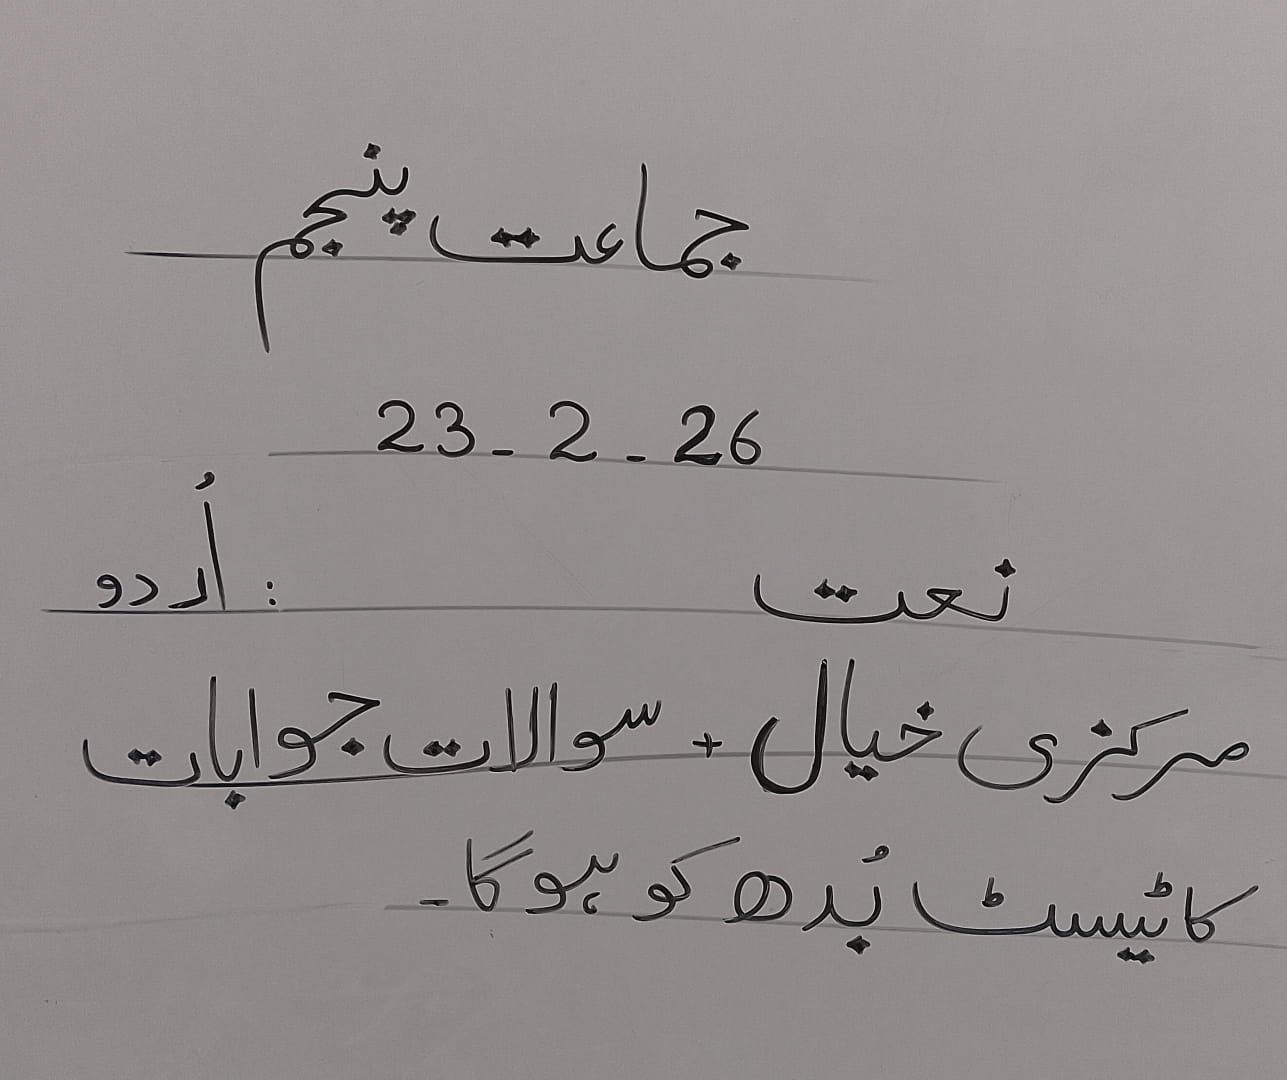 جماعت پنجم
23-2-26
نعت : اُردو
مرکزی خیال + سوالات جوابات
کا ٹیسٹ بُدھ کو ہوگا۔